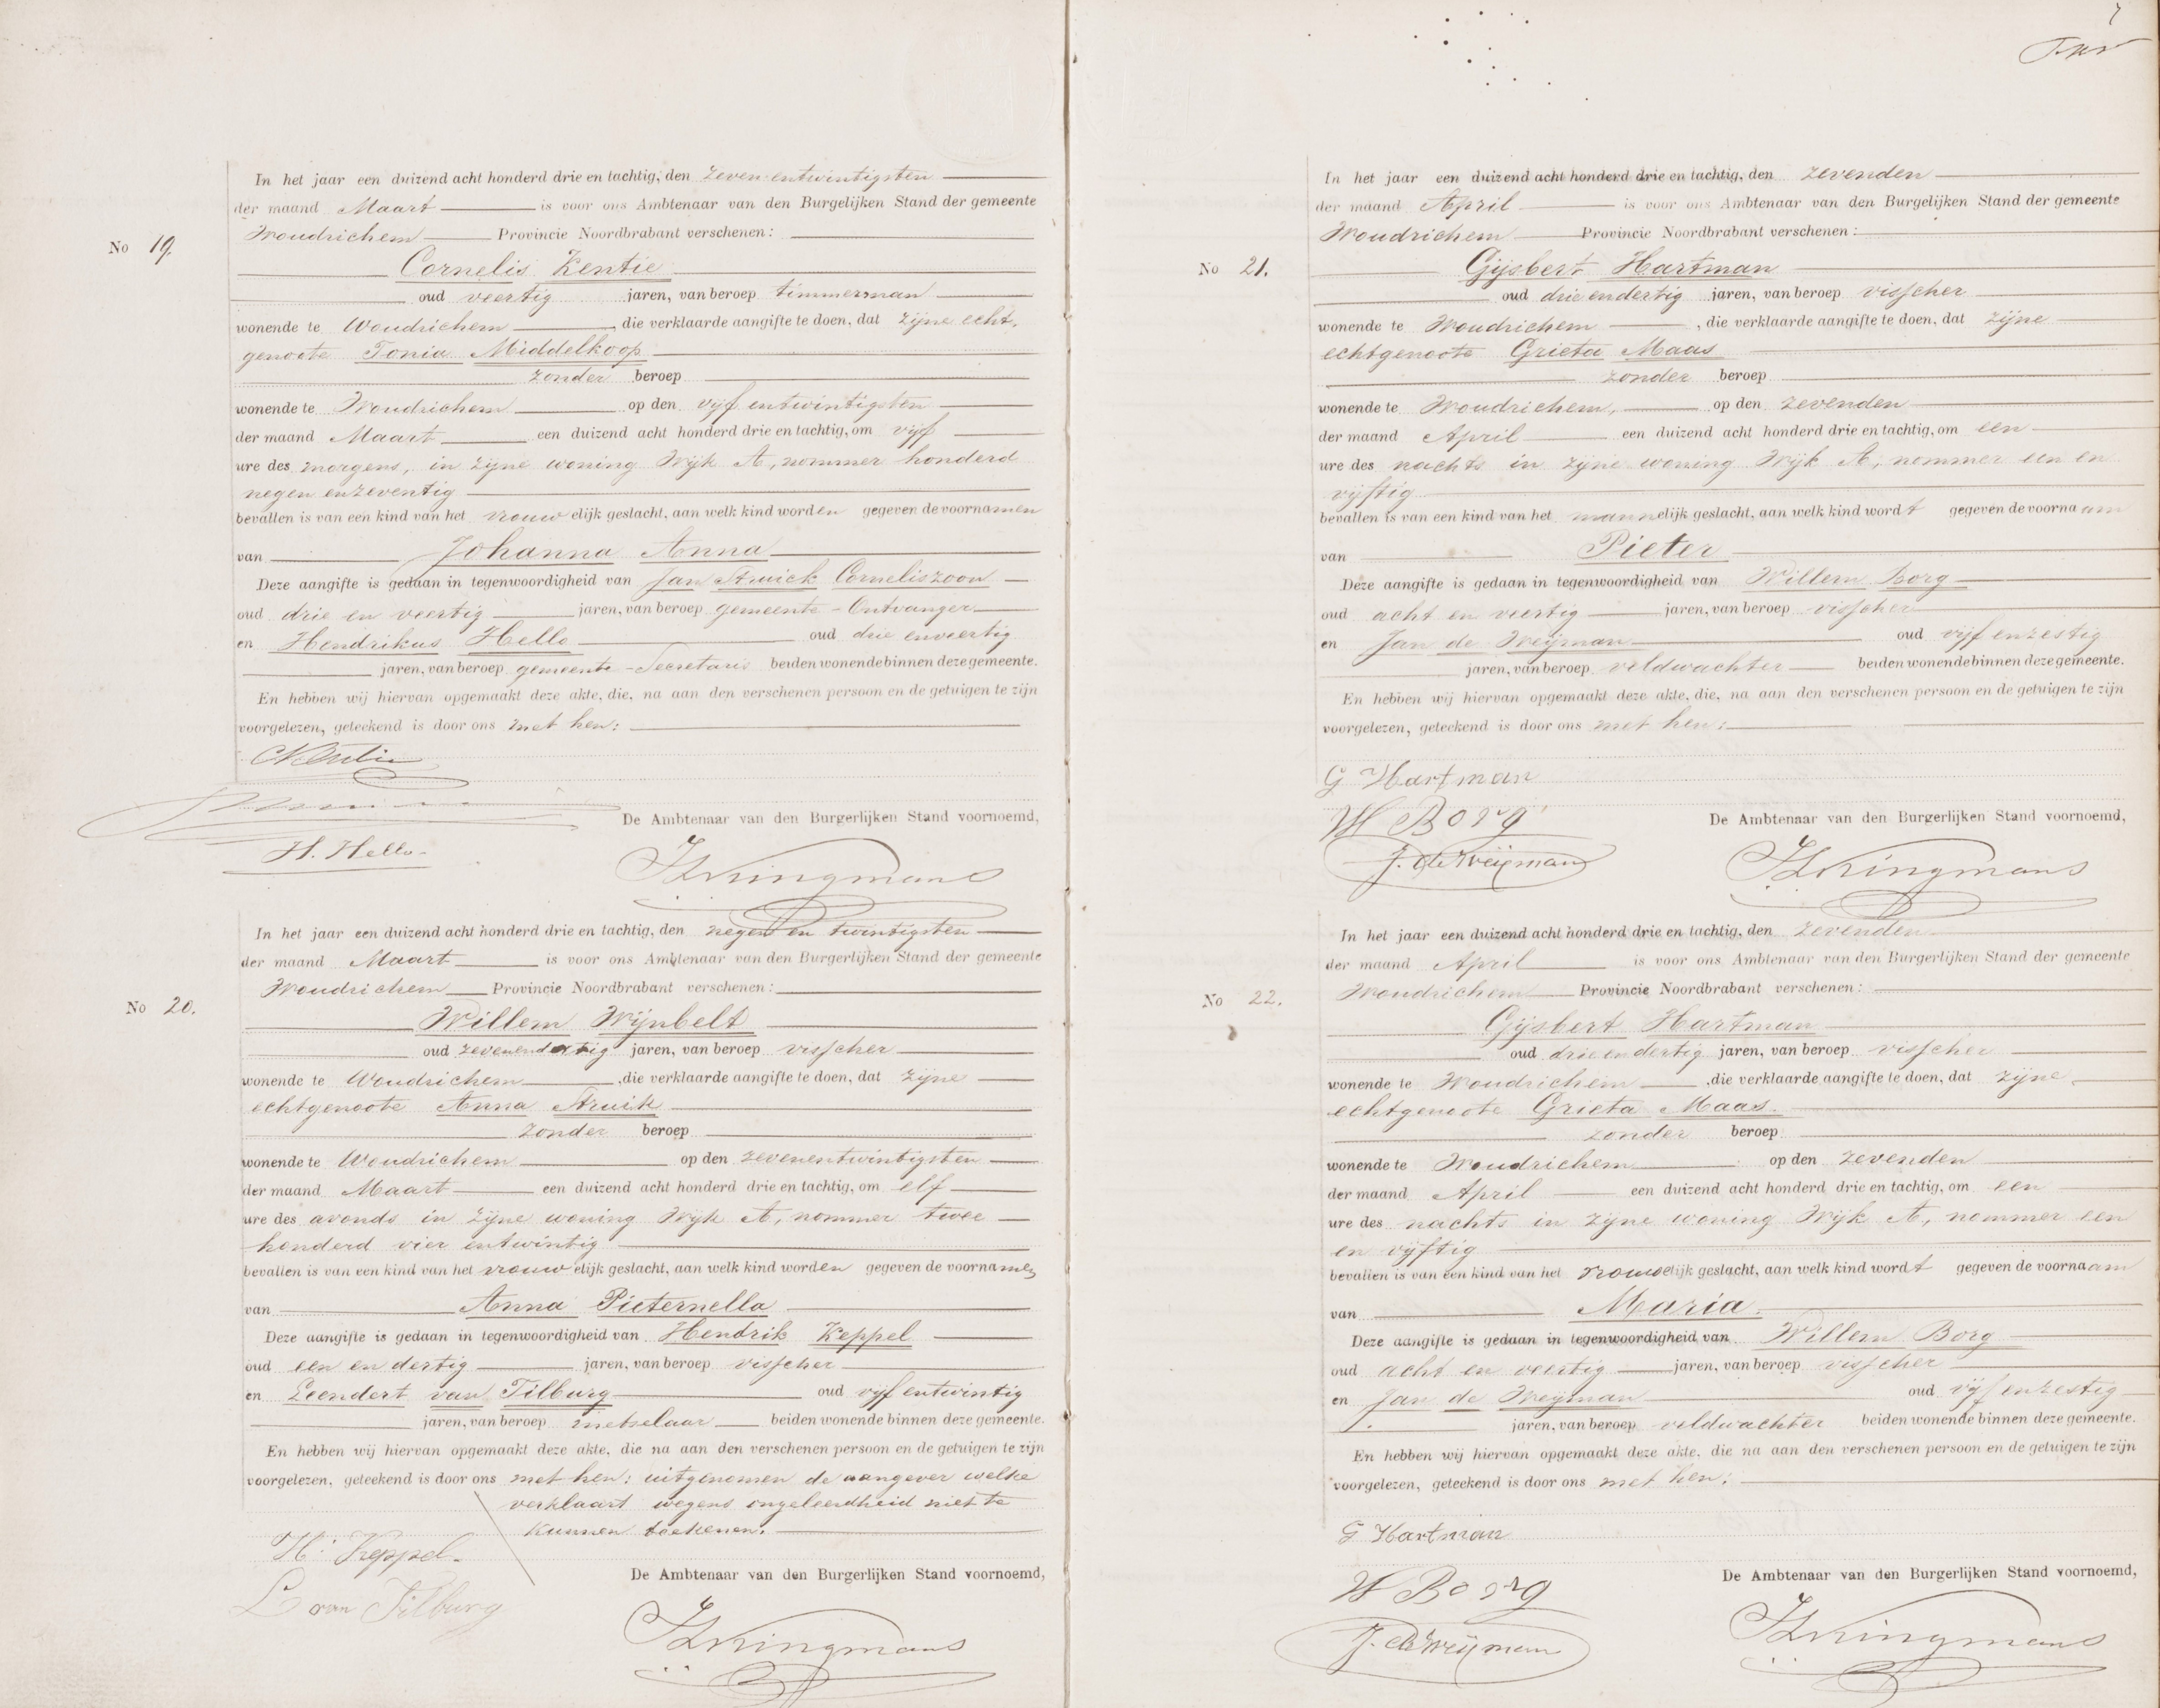 No 19.
In het jaar een duizend acht honderd drie en tachtig, den zeven entwintigsten
der maand Maart is voor ons Ambtenaar van den Burgelijken Stand der gemeente
Woudrichem Provincie Noordbrabant verschenen:
Cornelis Kentie
oud veertig jaren, van beroep timmerman
wonende te Woudrichem, die verklaarde aangifte te doen, dat zijne echt-
genoote Tonia Middelkoop
zonder beroep
wonende te Woudrichem op den vijf entwintigsten
der maand Maart een duizend acht honderd drie en tachtig, om vijf
ure des morgens, in zijne woning Wijk A, nommer honderd
negen enzeventig
bevallen is van een kind van het vrouwelijk geslacht, aan welk kind worden gegeven de voornamen
van Johanna Anna
Deze aangifte is gedaan in tegenwoordigheid van Jan Struick Corneliszoon
oud drie en veertig jaren, van beroep gemeente-Ontvanger
en Hendrikus Hello oud drie enveertig
jaren, van beroep gemeente-Secretaris beiden wonende binnen deze gemeente.
En hebben wij hiervan opgemaakt deze akte, die, na aan den verschenen persoon en de getuigen te zijn
voorgelezen, geteekend is door ons met hen:
De Ambtenaar van den Burgerlijken Stand voornoemd,
H. Hello
No 20.
In het jaar een duizend acht honderd drie en tachtig, den negen en twintigsten
der maand Maart is voor ons Ambtenaar van den Burgerlijken Stand der gemeente
Woudrichem Provincie Noordbrabant verschenen:
Willem Wijnbelt
oud zevenendertig jaren, van beroep visscher
wonende te Woudrichem, die verklaarde aangifte te doen, dat zijne
echtgenoote Anna Struik
zonder beroep
wonende te Woudrichem op den zevenentwintigsten
der maand Maart een duizend acht honderd drie en tachtig, om elf
ure des avonds in zijne woning Wijk A, nommer twee
honderd vier entwintig
bevallen is van een kind van het vrouwelijk geslacht, aan welk kind worden gegeven de voornamen
van Anna Pieternella
Deze aangifte is gedaan in tegenwoordigheid van Hendrik Keppel
oud een en dertig jaren, van beroep visscher
en Leendert van Tilburg oud vijf entwintig
jaren, van beroep metselaar beiden wonende binnen deze gemeente.
En hebben wij hiervan opgemaakt deze akte, die na aan den verschenen persoon en de getuigen te zijn
voorgelezen, geteekend is door ons met hen: uitgenomen de aangever welke
verklaart wegens ongeleerdheid niet te
kunnen teekenen.
H. Keppel.
De Ambtenaar van den Burgerlijken Stand voornoemd,
L van Tilburg
7
No 21.
In het jaar een duizend acht honderd drie en tachtig, den zevenden
der maand April is voor ons Ambtenaar van den Burgelijken Stand der gemeente
Woudrichem Provincie Noordbrabant verschenen:
Gijsbert Hartman
oud drie endertig jaren, van beroep visscher
wonende te Woudrichem, die verklaarde aangifte te doen, dat zijne
echtgenoote Grieta Maas
zonder beroep
wonende te Woudrichem, op den zevenden
der maand April een duizend acht honderd drie en tachtig, om een
ure des nachts in zijne woning Wijk A, nommer een en
vijftig
bevallen is van een kind van het mannelijk geslacht, aan welk kind wordt gegeven de voornaam
van Pieter
Deze aangifte is gedaan in tegenwoordigheid van Willem Borg
oud acht en veertig jaren, van beroep visscher
en Jan de Weijman oud vijf enzestig
jaren, van beroep veldwachter beiden wonende binnen deze gemeente.
En hebben wij hiervan opgemaakt deze akte, die, na aan den verschenen persoon en de getuigen te zijn
voorgelezen, geteekend is door ons met hen:
G Hartman
W Borg
De Ambtenaar van den Burgerlijken Stand voornoemd,
J. de Weijman
No 22.
In het jaar een duizend acht honderd drie en tachtig, den zevenden
der maand April is voor ons Ambtenaar van den Burgerlijken Stand der gemeente
Woudrichem Provincie Noordbrabant verschenen:
Gijsbert Hartman
oud drie en dertig jaren, van beroep visscher
wonende te Woudrichem, die verklaarde aangifte te doen, dat zijne
echtgenoote Grieta Maas.
zonder beroep
wonende te Woudrichem op den zevenden
der maand April een duizend acht honderd drie en tachtig, om een
ure des nachts in zijne woning Wijk A, nommer een
en vijftig
bevallen is van een kind van het vrouwelijk geslacht, aan welk kind wordt gegeven de voornaam
van Maria.
Deze aangifte is gedaan in tegenwoordigheid van Willem Borg
oud acht en veertig jaren, van beroep visscher
en Jan de Weijman oud vijf enzestig
jaren, van beroep veldwachter beiden wonende binnen deze gemeente.
En hebben wij hiervan opgemaakt deze akte, die na aan den verschenen persoon en de getuigen te zijn
voorgelezen, geteekend is door ons met hen:
G Hartman
De Ambtenaar van den Burgerlijken Stand voornoemd,
W Borg
J. de Weijman